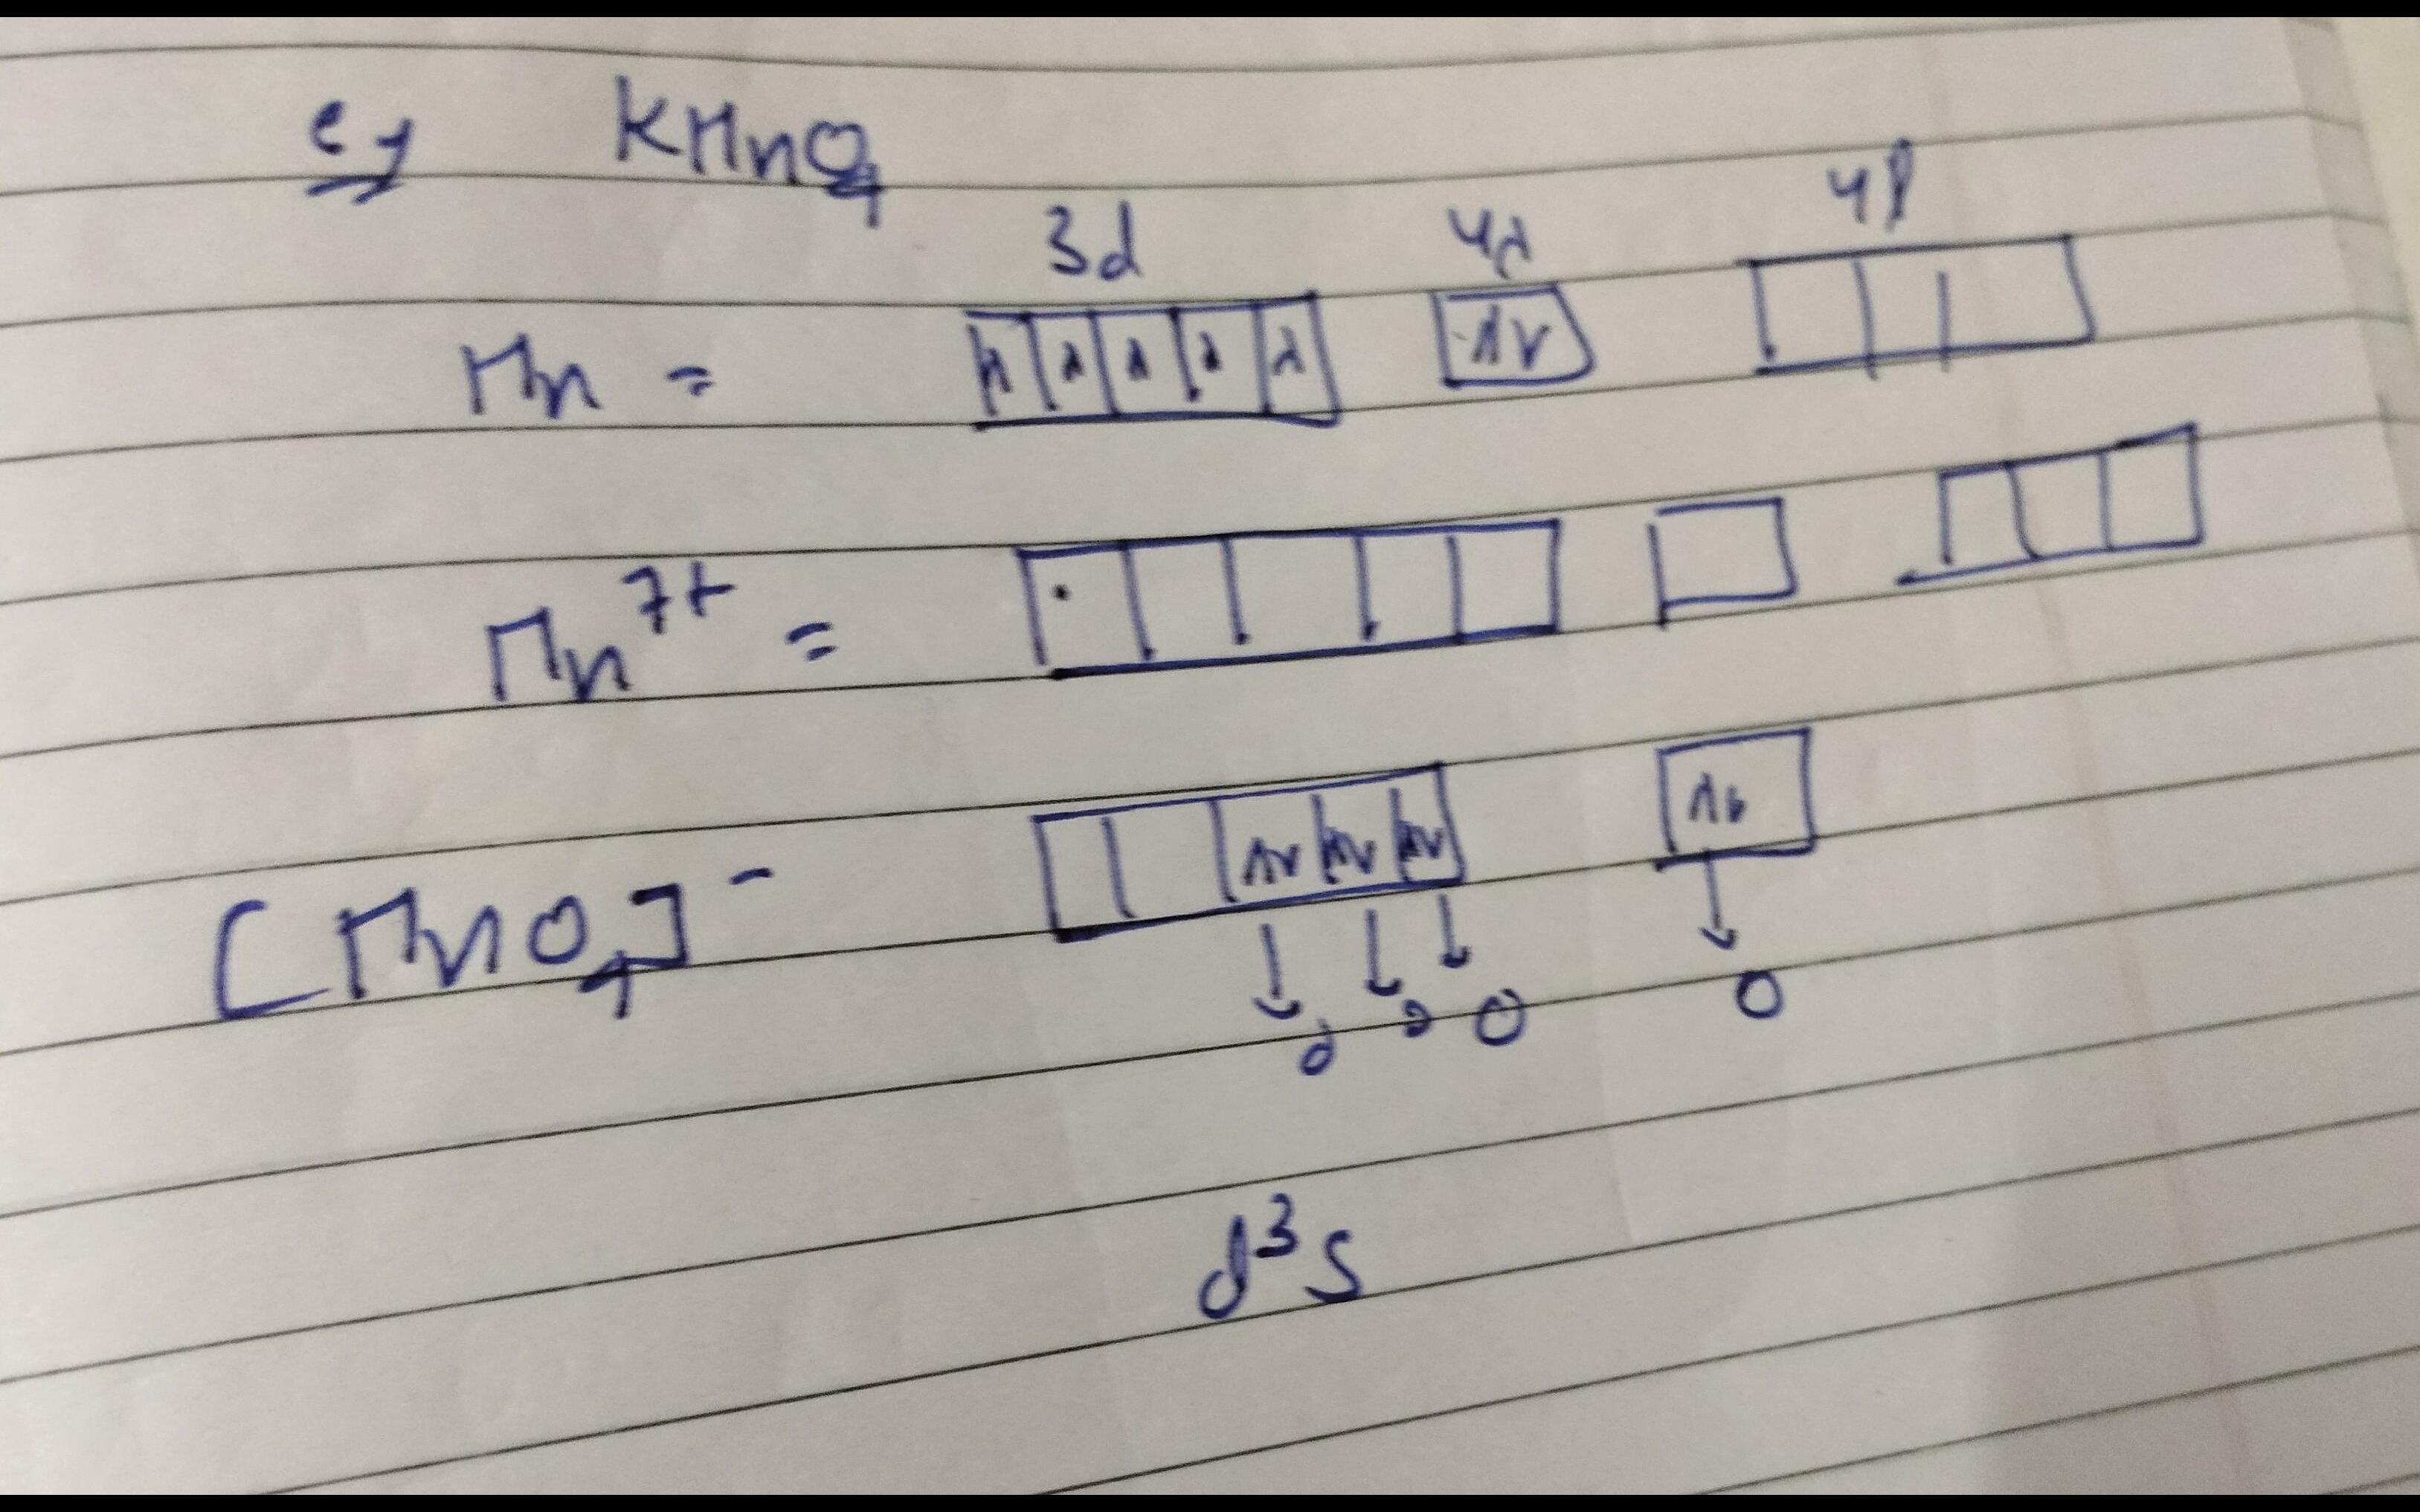 eg KMnO₄
3d 4s 4p
Mn =
Mn⁷⁺ =
[MnO₄]⁻
O O O O
d³s